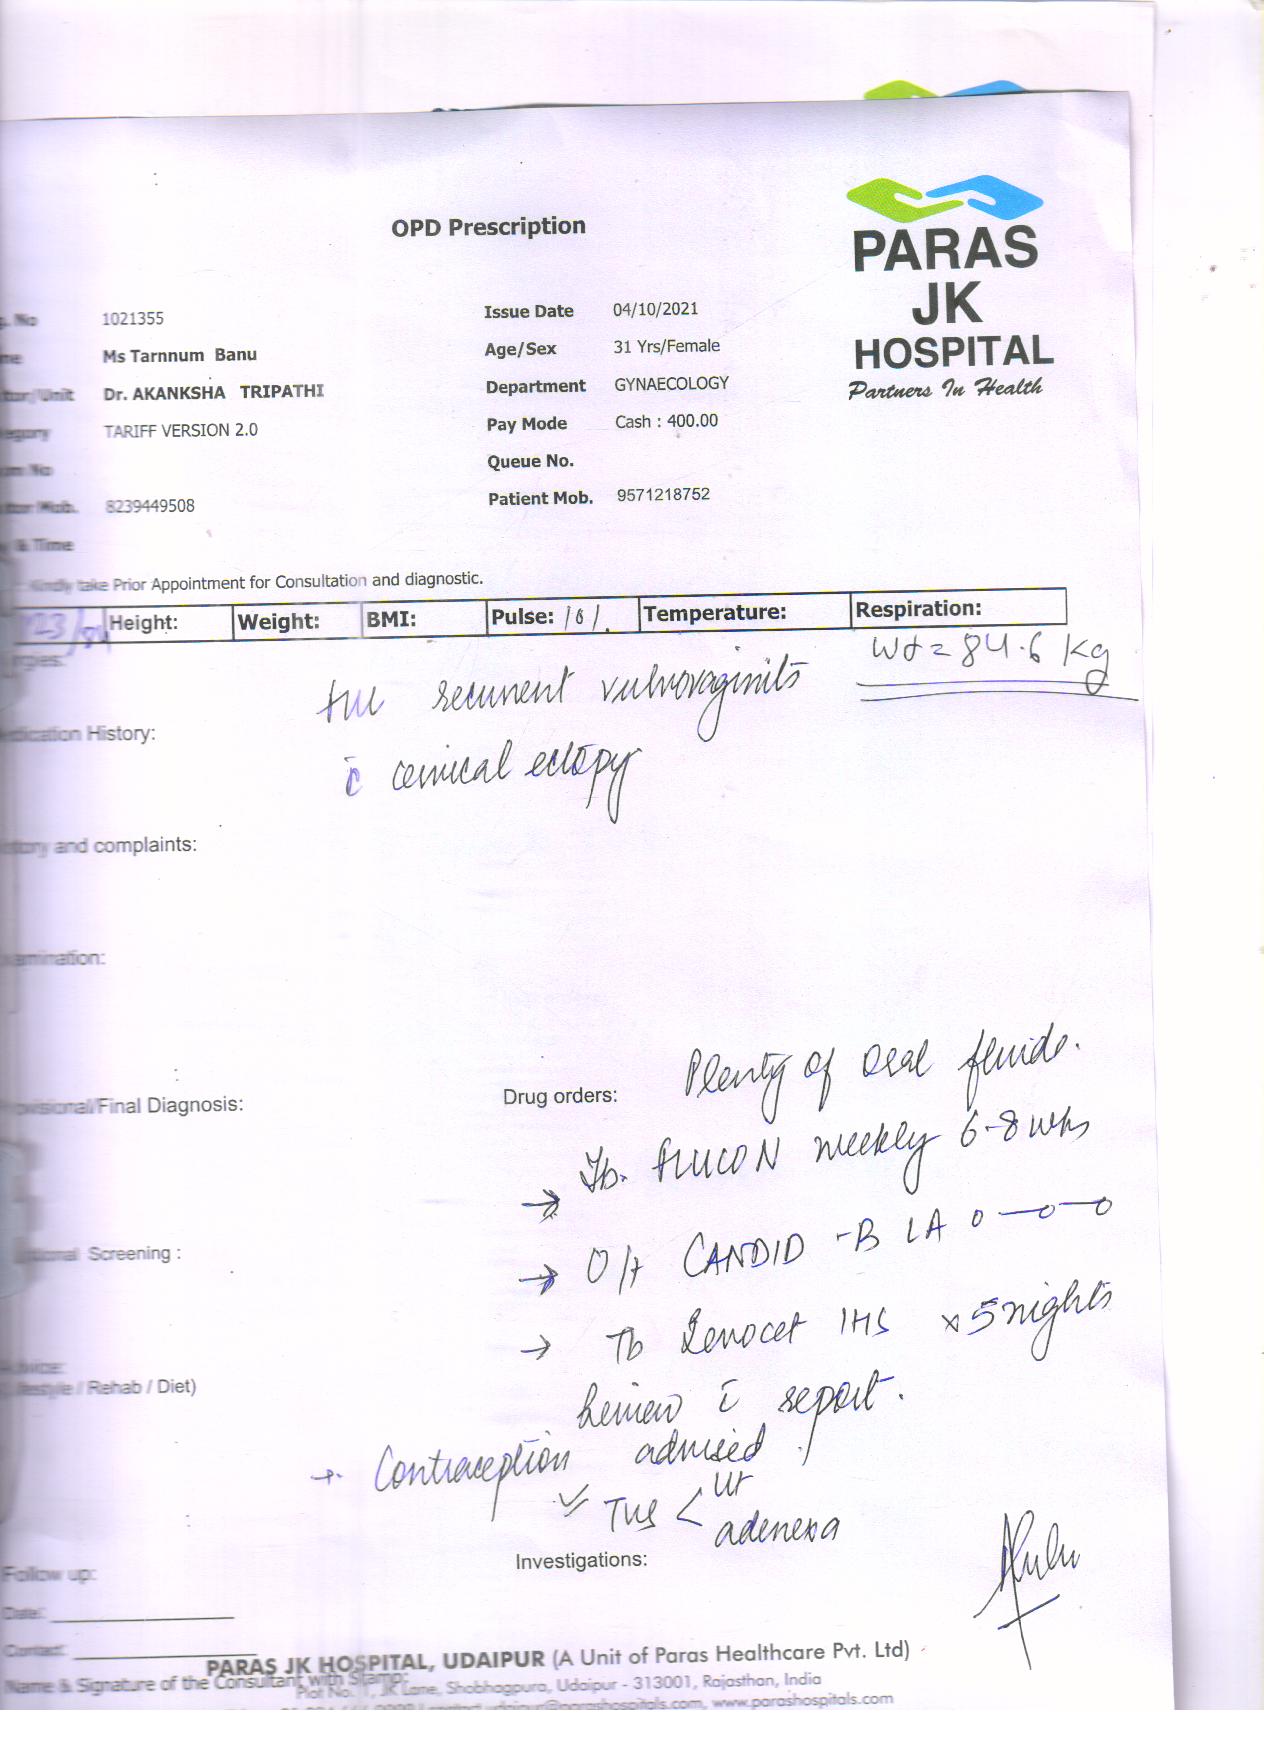 OPD Prescription
PARAS
JK
HOSPITAL
Partners In Health
No 1021355
Ms Tarnnum Banu
/Unit Dr. AKANKSHA TRIPATHI
TARIFF VERSION 2.0
No
Mob. 8239449508
& Time
Issue Date 04/10/2021
Age/Sex 31 Yrs/Female
Department GYNAECOLOGY
Pay Mode Cash : 400.00
Queue No.
Patient Mob. 9571218752
Kindly take Prior Appointment for Consultation and diagnostic.
Height: Weight: BMI: Pulse: 101 Temperature: Respiration:
Wt = 84.6 Kg
recurrent vulvovaginitis
c̄ cervical ectopy
History:
and complaints:
/Final Diagnosis:
Drug orders:
Plenty of oral fluids.
→ Tb. FLUCON weekly 6-8 wks
Screening :
→ O/t CANDID -B LA 0—0—0
→ Tb 1HS x 5 nights
/ Rehab / Diet)
Review c̄ report.
→ Contraception advised
TVS < Ut
adenexa
Investigations:
Follow up:
Date:
Contact:
PARAS JK HOSPITAL, UDAIPUR (A Unit of Paras Healthcare Pvt. Ltd)
Name & Signature of the Consultant with Stamp:
Plot No. 1, JK Lane, Shobhagpura, Udaipur - 313001, Rajasthan, India
udaipur@parashospitals.com, www.parashospitals.com